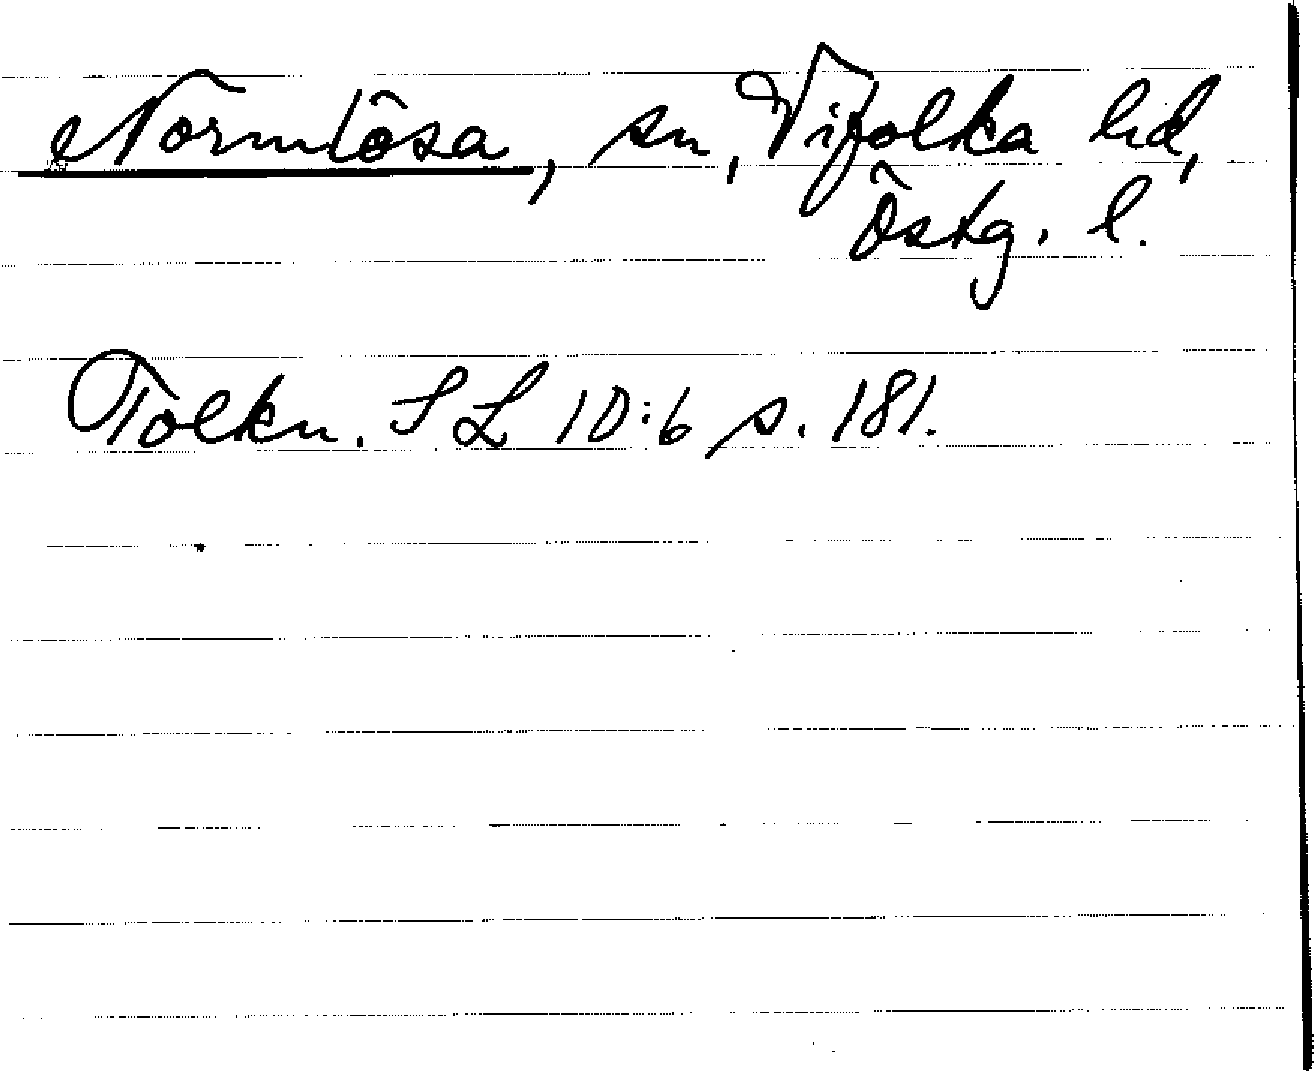 Normlösa, sn, Vifolka hd,
Östg. l.
Tolkn. SL 10:6 s. 181.